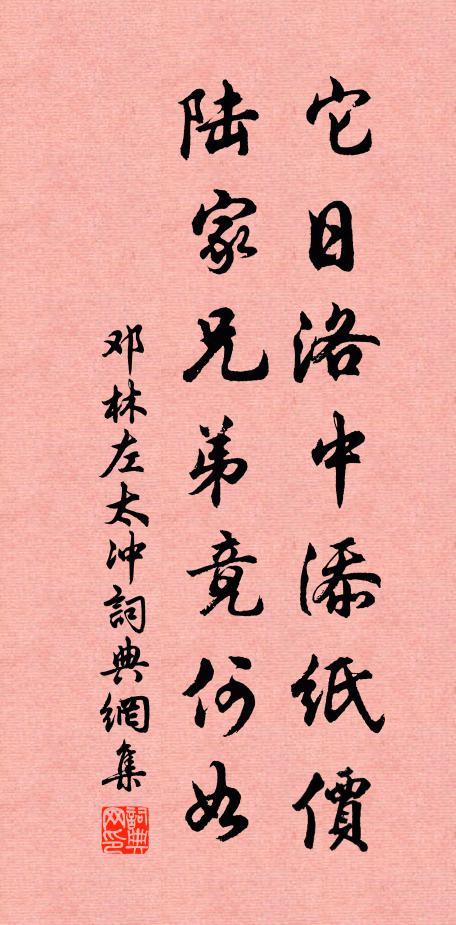 它日洛中添纸價
陆家兄弟竟何如
邓林左太冲詞典網集
詞典网印